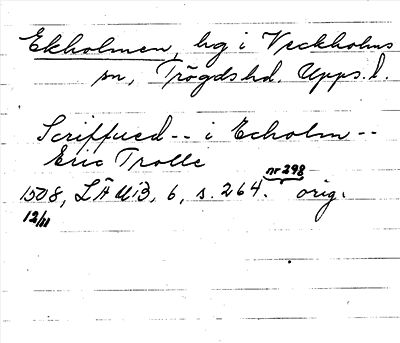 Ekholmen, hg i Veckholms
sn, Trögds hd. Upps. l.
Scriffued -- i Echolm --
Eric Trolle
nr 298
1508, LÄUB, 6, s. 264. orig.
12/11